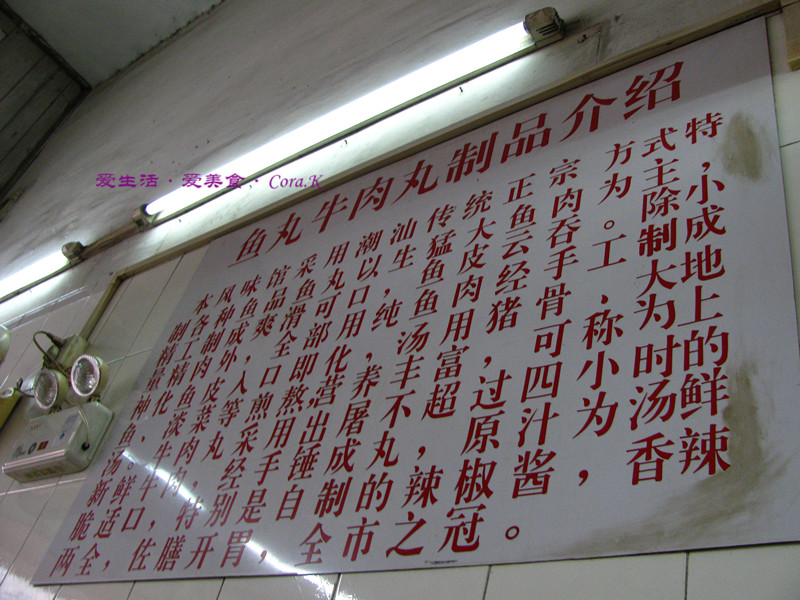 爱生活·爱美食· Cora.K
鱼丸牛肉丸制品介绍
本风味馆采用潮汕传统正宗方式特
制各种鱼品鱼丸以生猛大鱼肉为主，
料工制成爽滑可口，纯鱼皮云吞。除小
量精肉外，全部用鱼肉经手工制成
种化鱼皮入口即化，汤用猪骨，大地
鱼、淡菜等煎熬营养丰富，可称为上
汤。牛肉丸采用出屠不超过四小时的
新鲜牛肉，经手锤成丸，原汁为汤，鲜
脆适口，特别是自制的辣椒酱，香辣
两全，佐膳开胃，全市之冠。